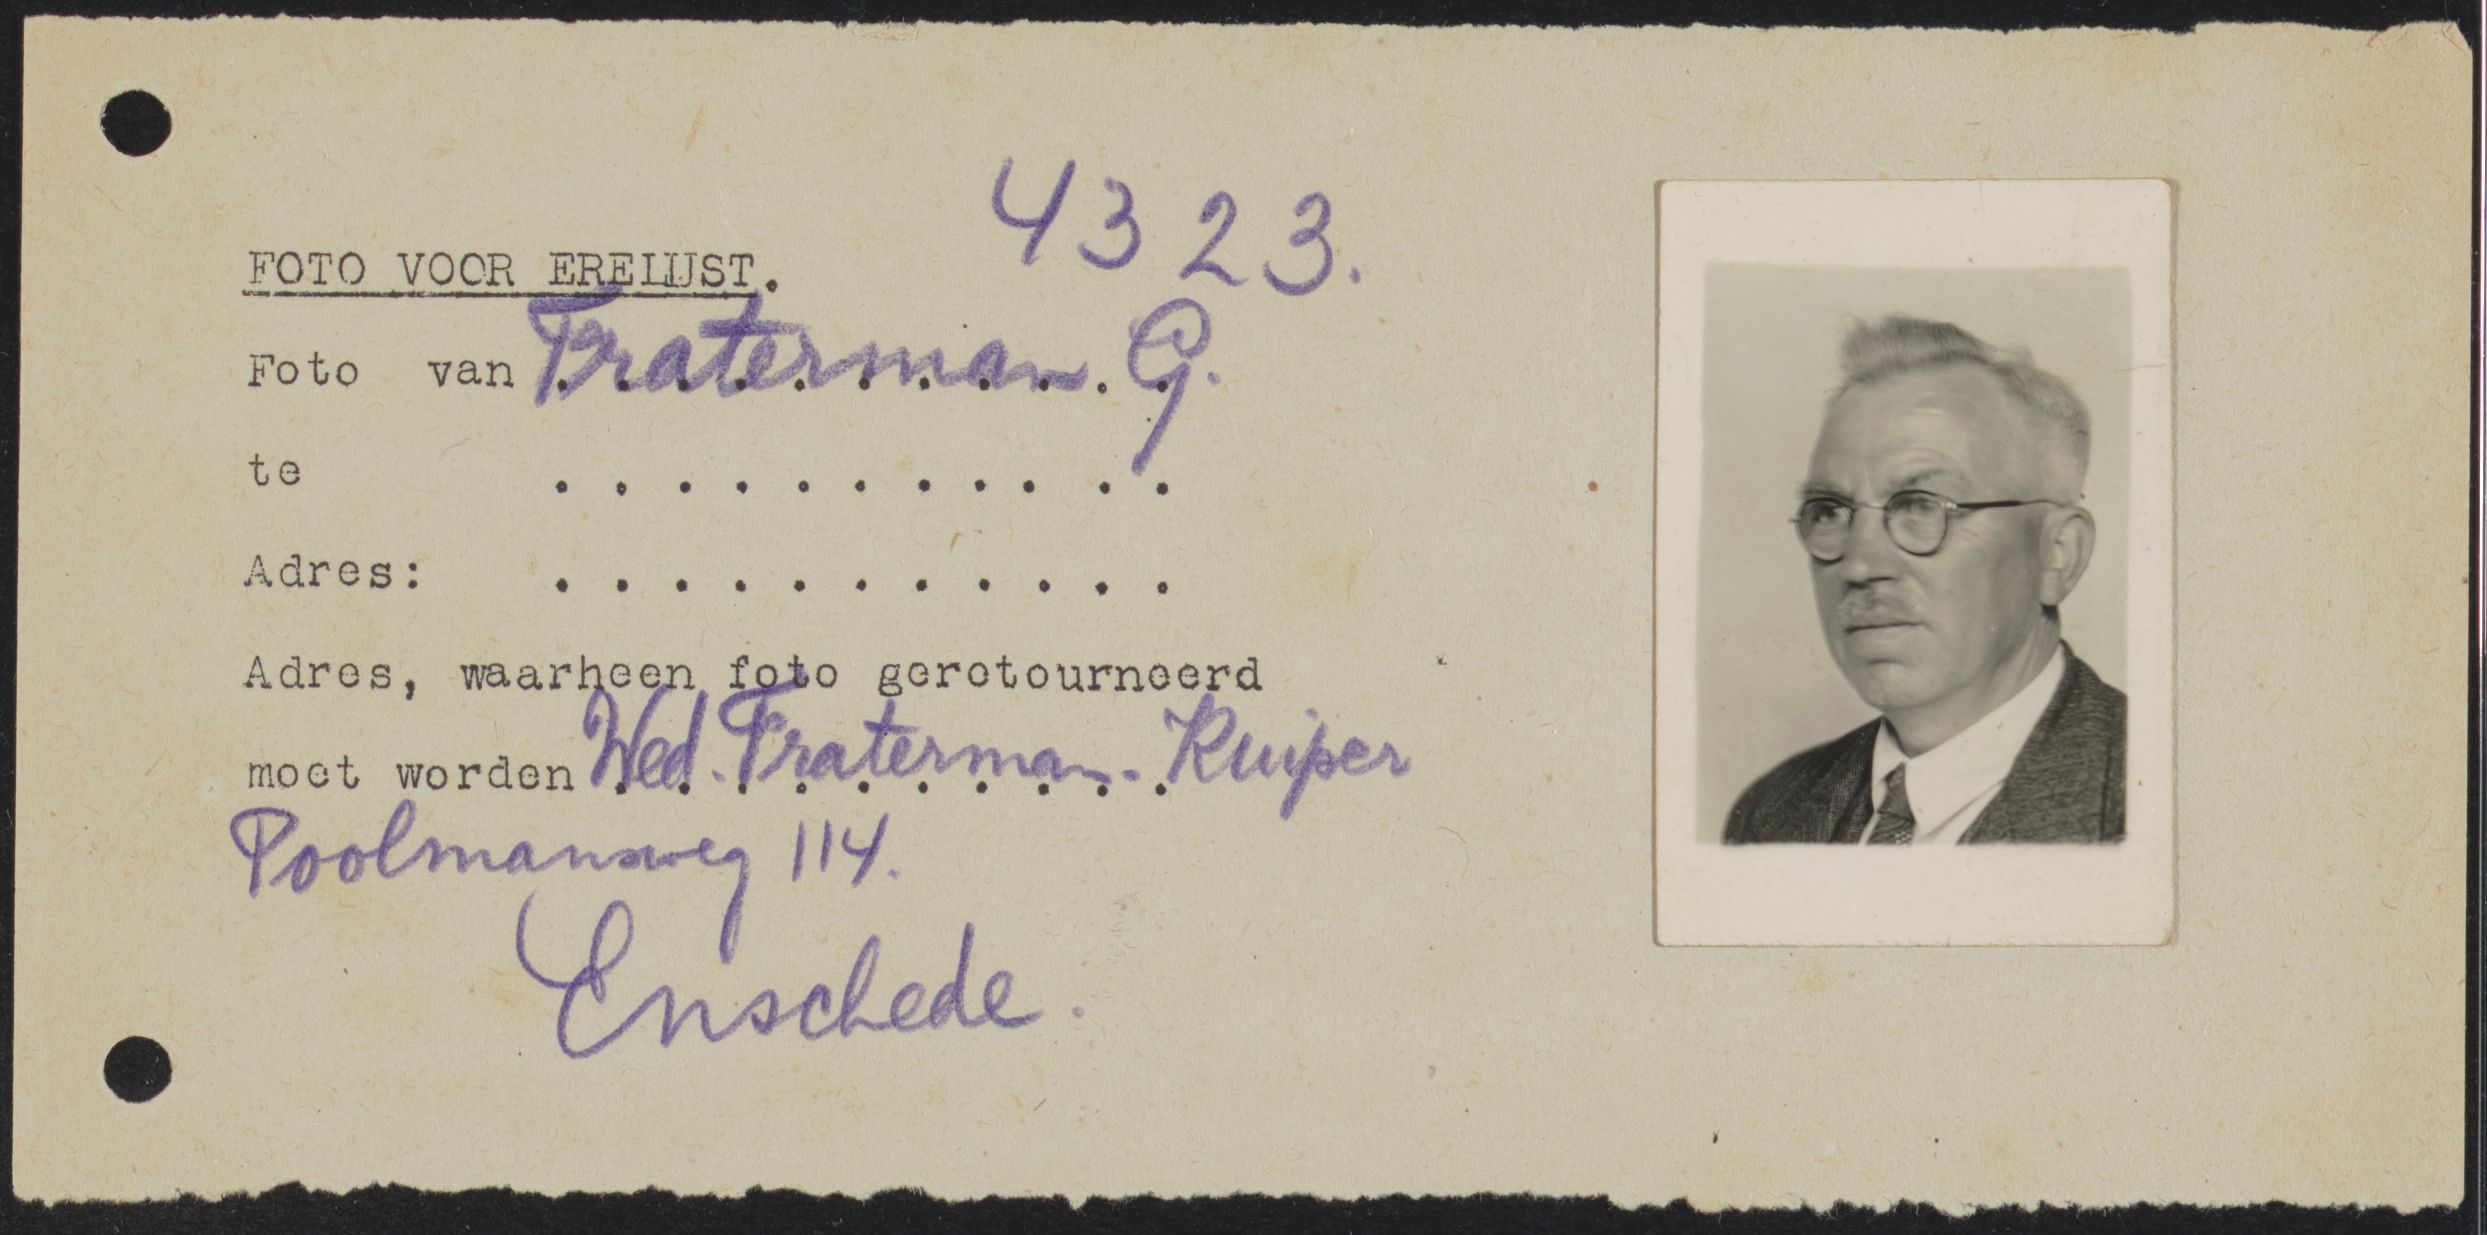 4323.
FOTO VOOR ERELIJST.
Foto van Fraterman. G.
te . . . . . . . . . . .
Adres: . . . . . . . . . . .
Adres, waarheen foto geretourneerd
moet worden Wed. Fraterman-Kuiper
Poolmansweg 114.
Enschede.